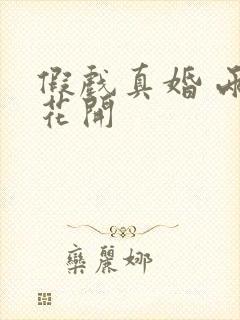 假戲真婚
花開
欒麗娜